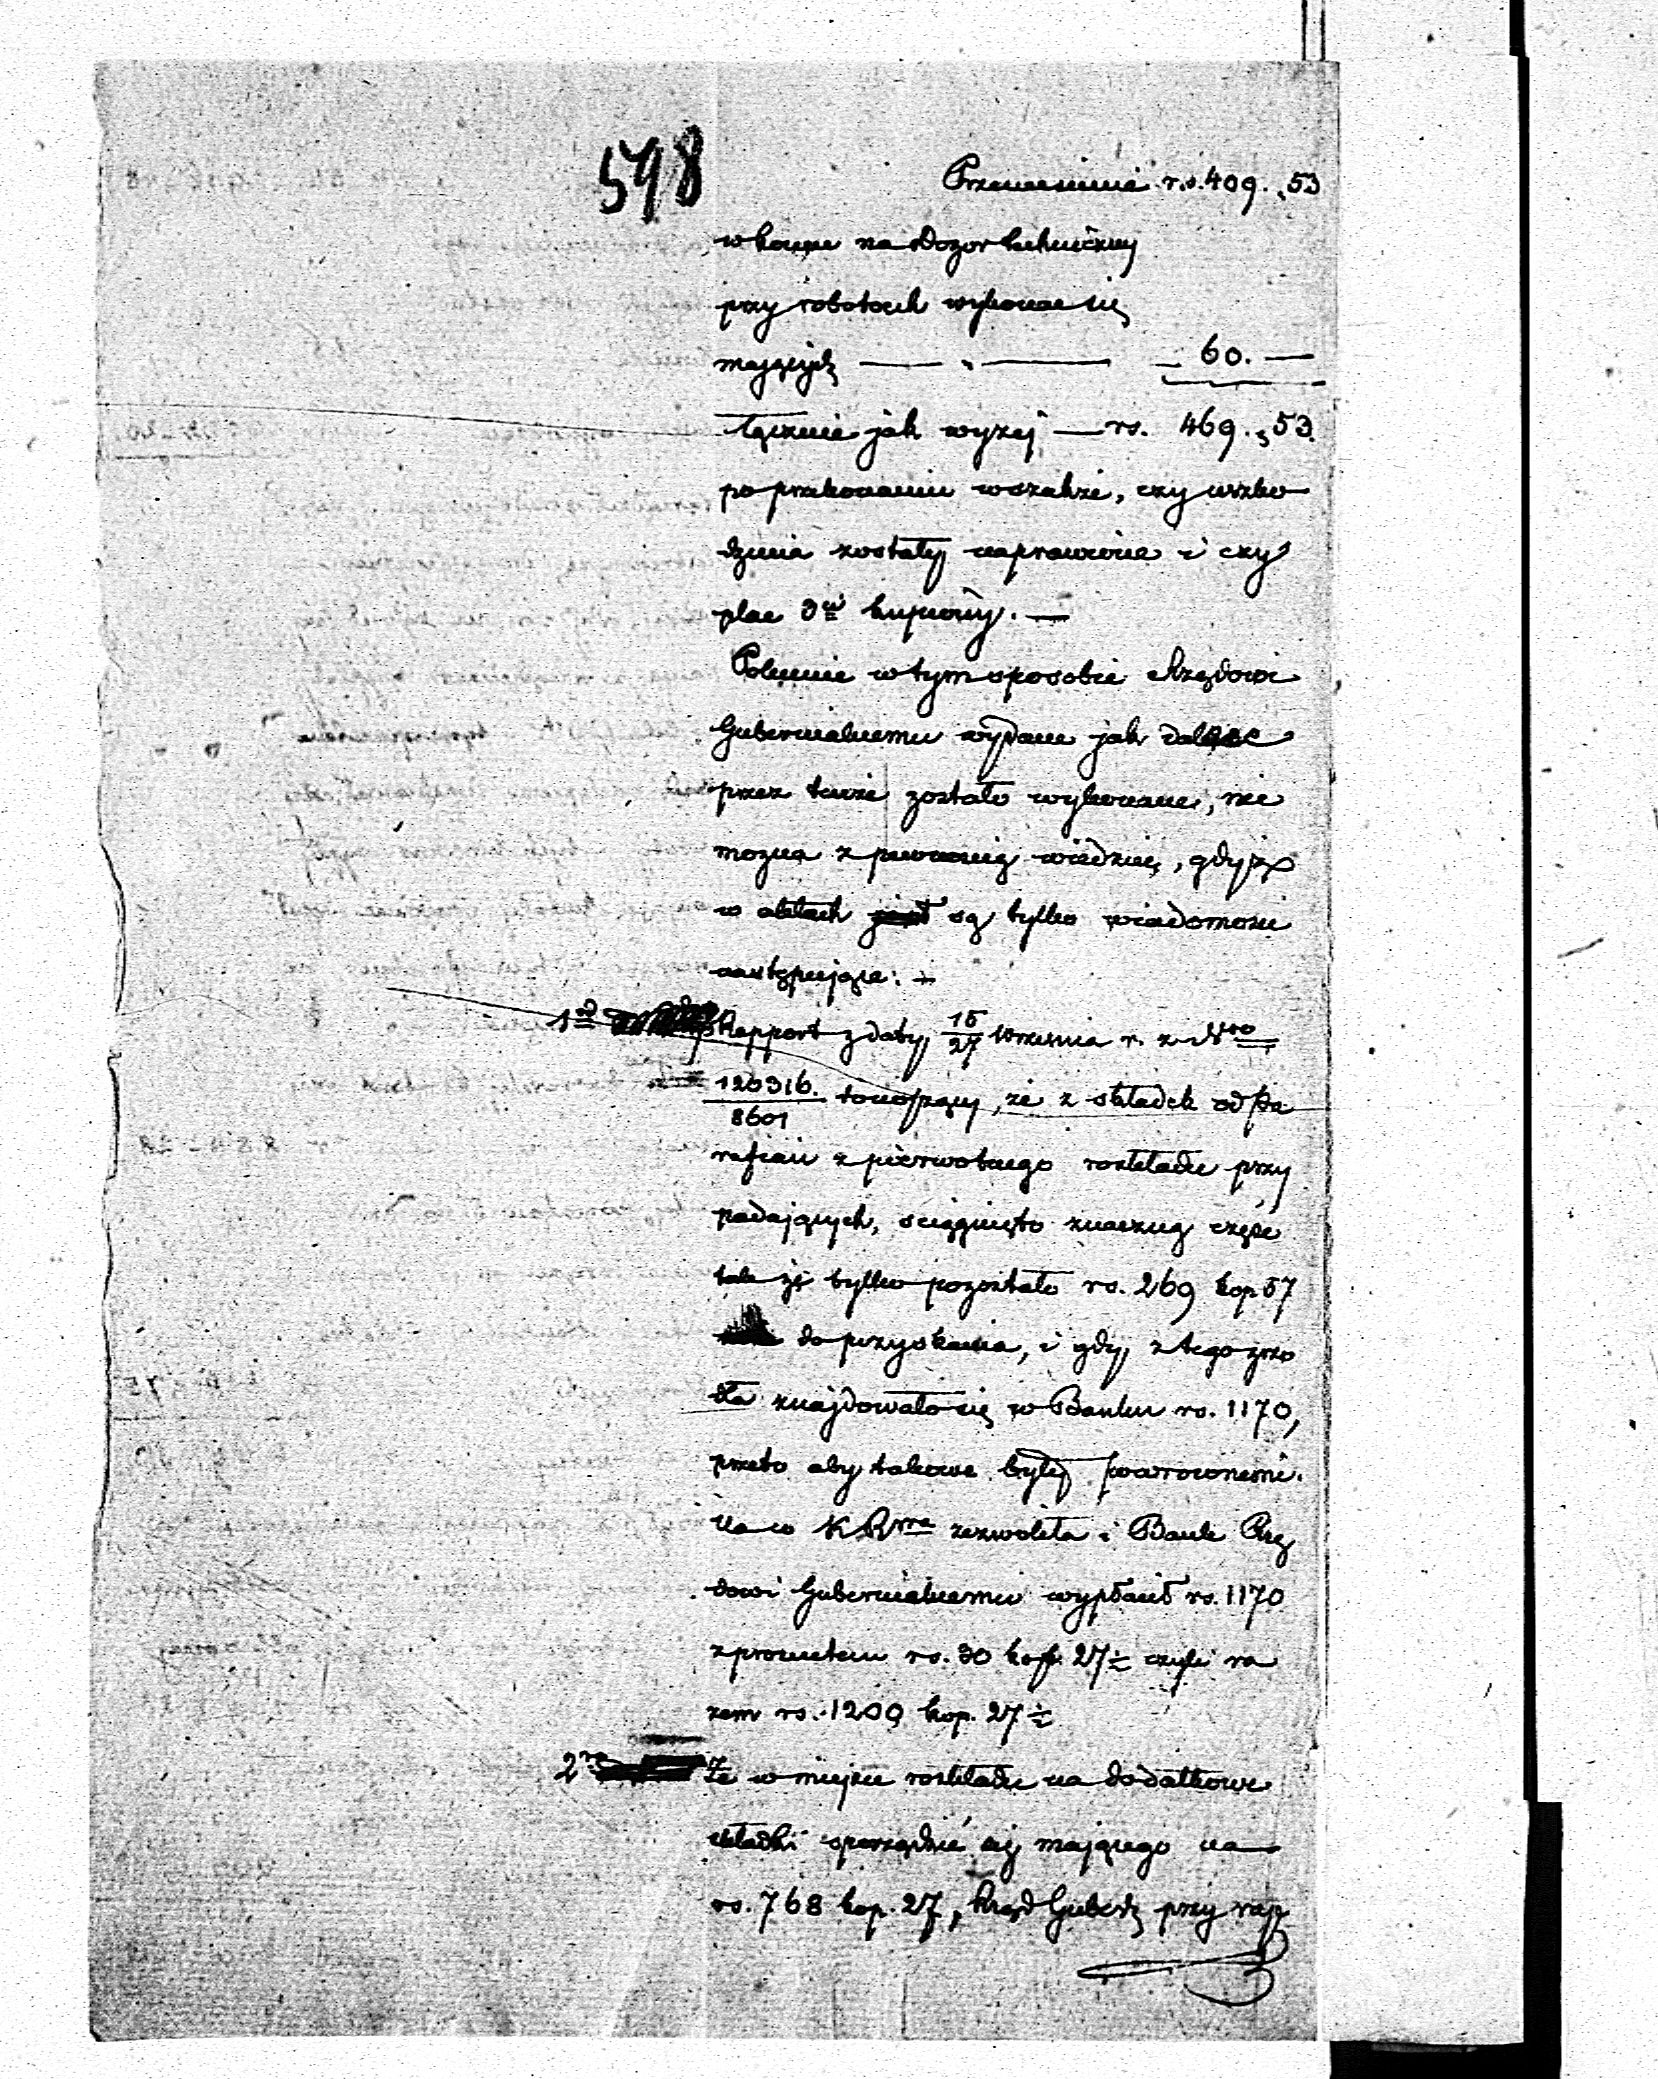 598
Przeniesienie rs. 409. „ 53
w końcu na Dozor techniczny
przy robotach wykonać się
mających — „ — — 60. —
łącznie jak wyżej — rs. 469. „ 53.
po przekonaniu wszakże, czy uszko
dzenia zostały naprawione i czy
plac
Polecenie w tym sposobie Rządowi
Gubernialnemu wydane jak dalece
przez tenże zostało wykonane, nie
można z pewnością wiedzieć, gdyż
w aktach są tylko wiadomości
następujące: —
1º Rapport z daty 15/27 Września r. z. Nro
120316./8601 donoszący, że z składek od Pa
rafian z pierwotnego rozkładu przy
padających, ściągnięto znaczną część
tak że tylko pozostało rs. 269 kop 57
do pozyskania, i gdy z tego źrzo
dła znajdowało się w Banku rs. 1170,
przeto aby takowe były zwrocone
Na co KRma zezwoliła i Bank Rzą
dowi Gubernialnemu wypłacił rs. 1170
z procentem rs. 30 kop. 27½ czyli ra
zem rs. 1200 kop. 27½
2re Że w miejsce rozkładu na dodatkowe
składki sporządzić się mającego na
rs. 768 kop. 27, Rząd Gubern. przy rap